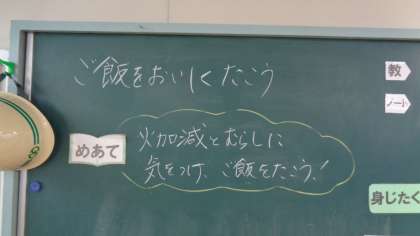 ご飯をおいしくたこう
教
ノート
めあて
火加減とむらしに
気をつけ、ご飯をたこう!
身じたく